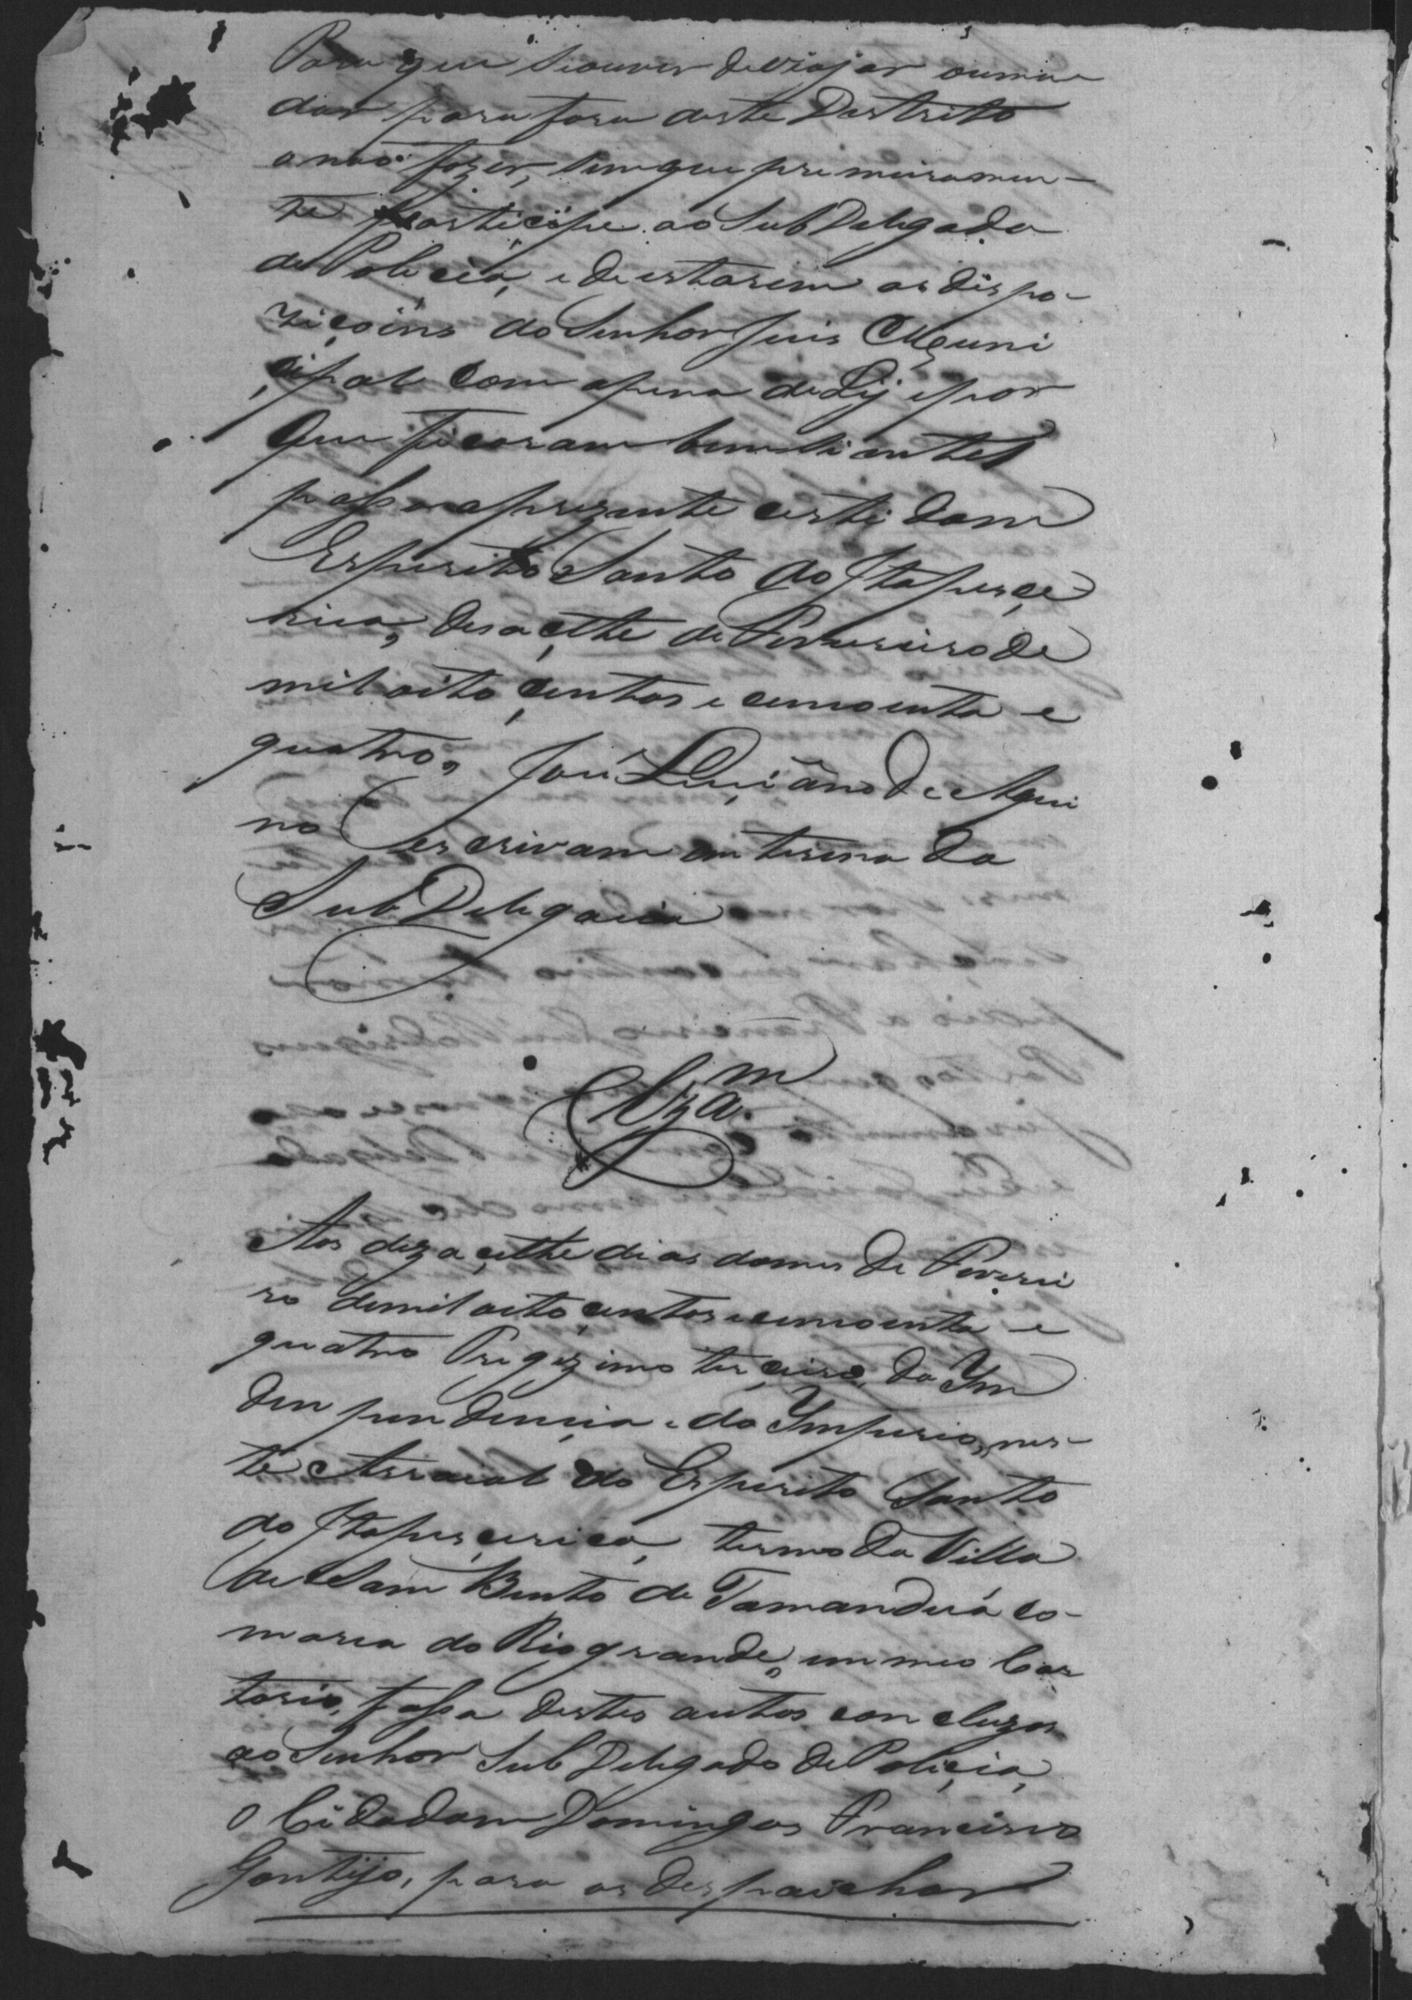 Para que seouver deviajar oumu-
dar para fora deste Destrito
onaõ fazer, sem que primeiramen-
te participe ao Sub Delegado
de Policia, e de estarem as dispo-
ziçoins do Senhor Juis Muni
cipal com apena de Lij epor
que ficaram bem scientes
passo aprezente certidam
Esperito Santo do Itapece
rica, desacethe de Fevereiro de
mil oito centos e cincoenta e
quatro, José Luçiano de Aqui
no Escrivam interino da
Sub Delegacia
Clzam.
Aos dezacethe dias domes de Feverei
ro demil oito centos ecincoenta e
quatro Tregezimo terceiro da Yn
dependencia e do Ymperio, nes-
te Arraial do Esperito Santo
do Itapececerica, termo da Villa
de Sam Bento de Tamanduá co-
marca do Rio grande, em meo Car
torio, fasso destes autos concluzos
ao Senhor Sub Delegado de Policia,
o Cidadam Domingos Francisco
Gontijo, para os despaichar